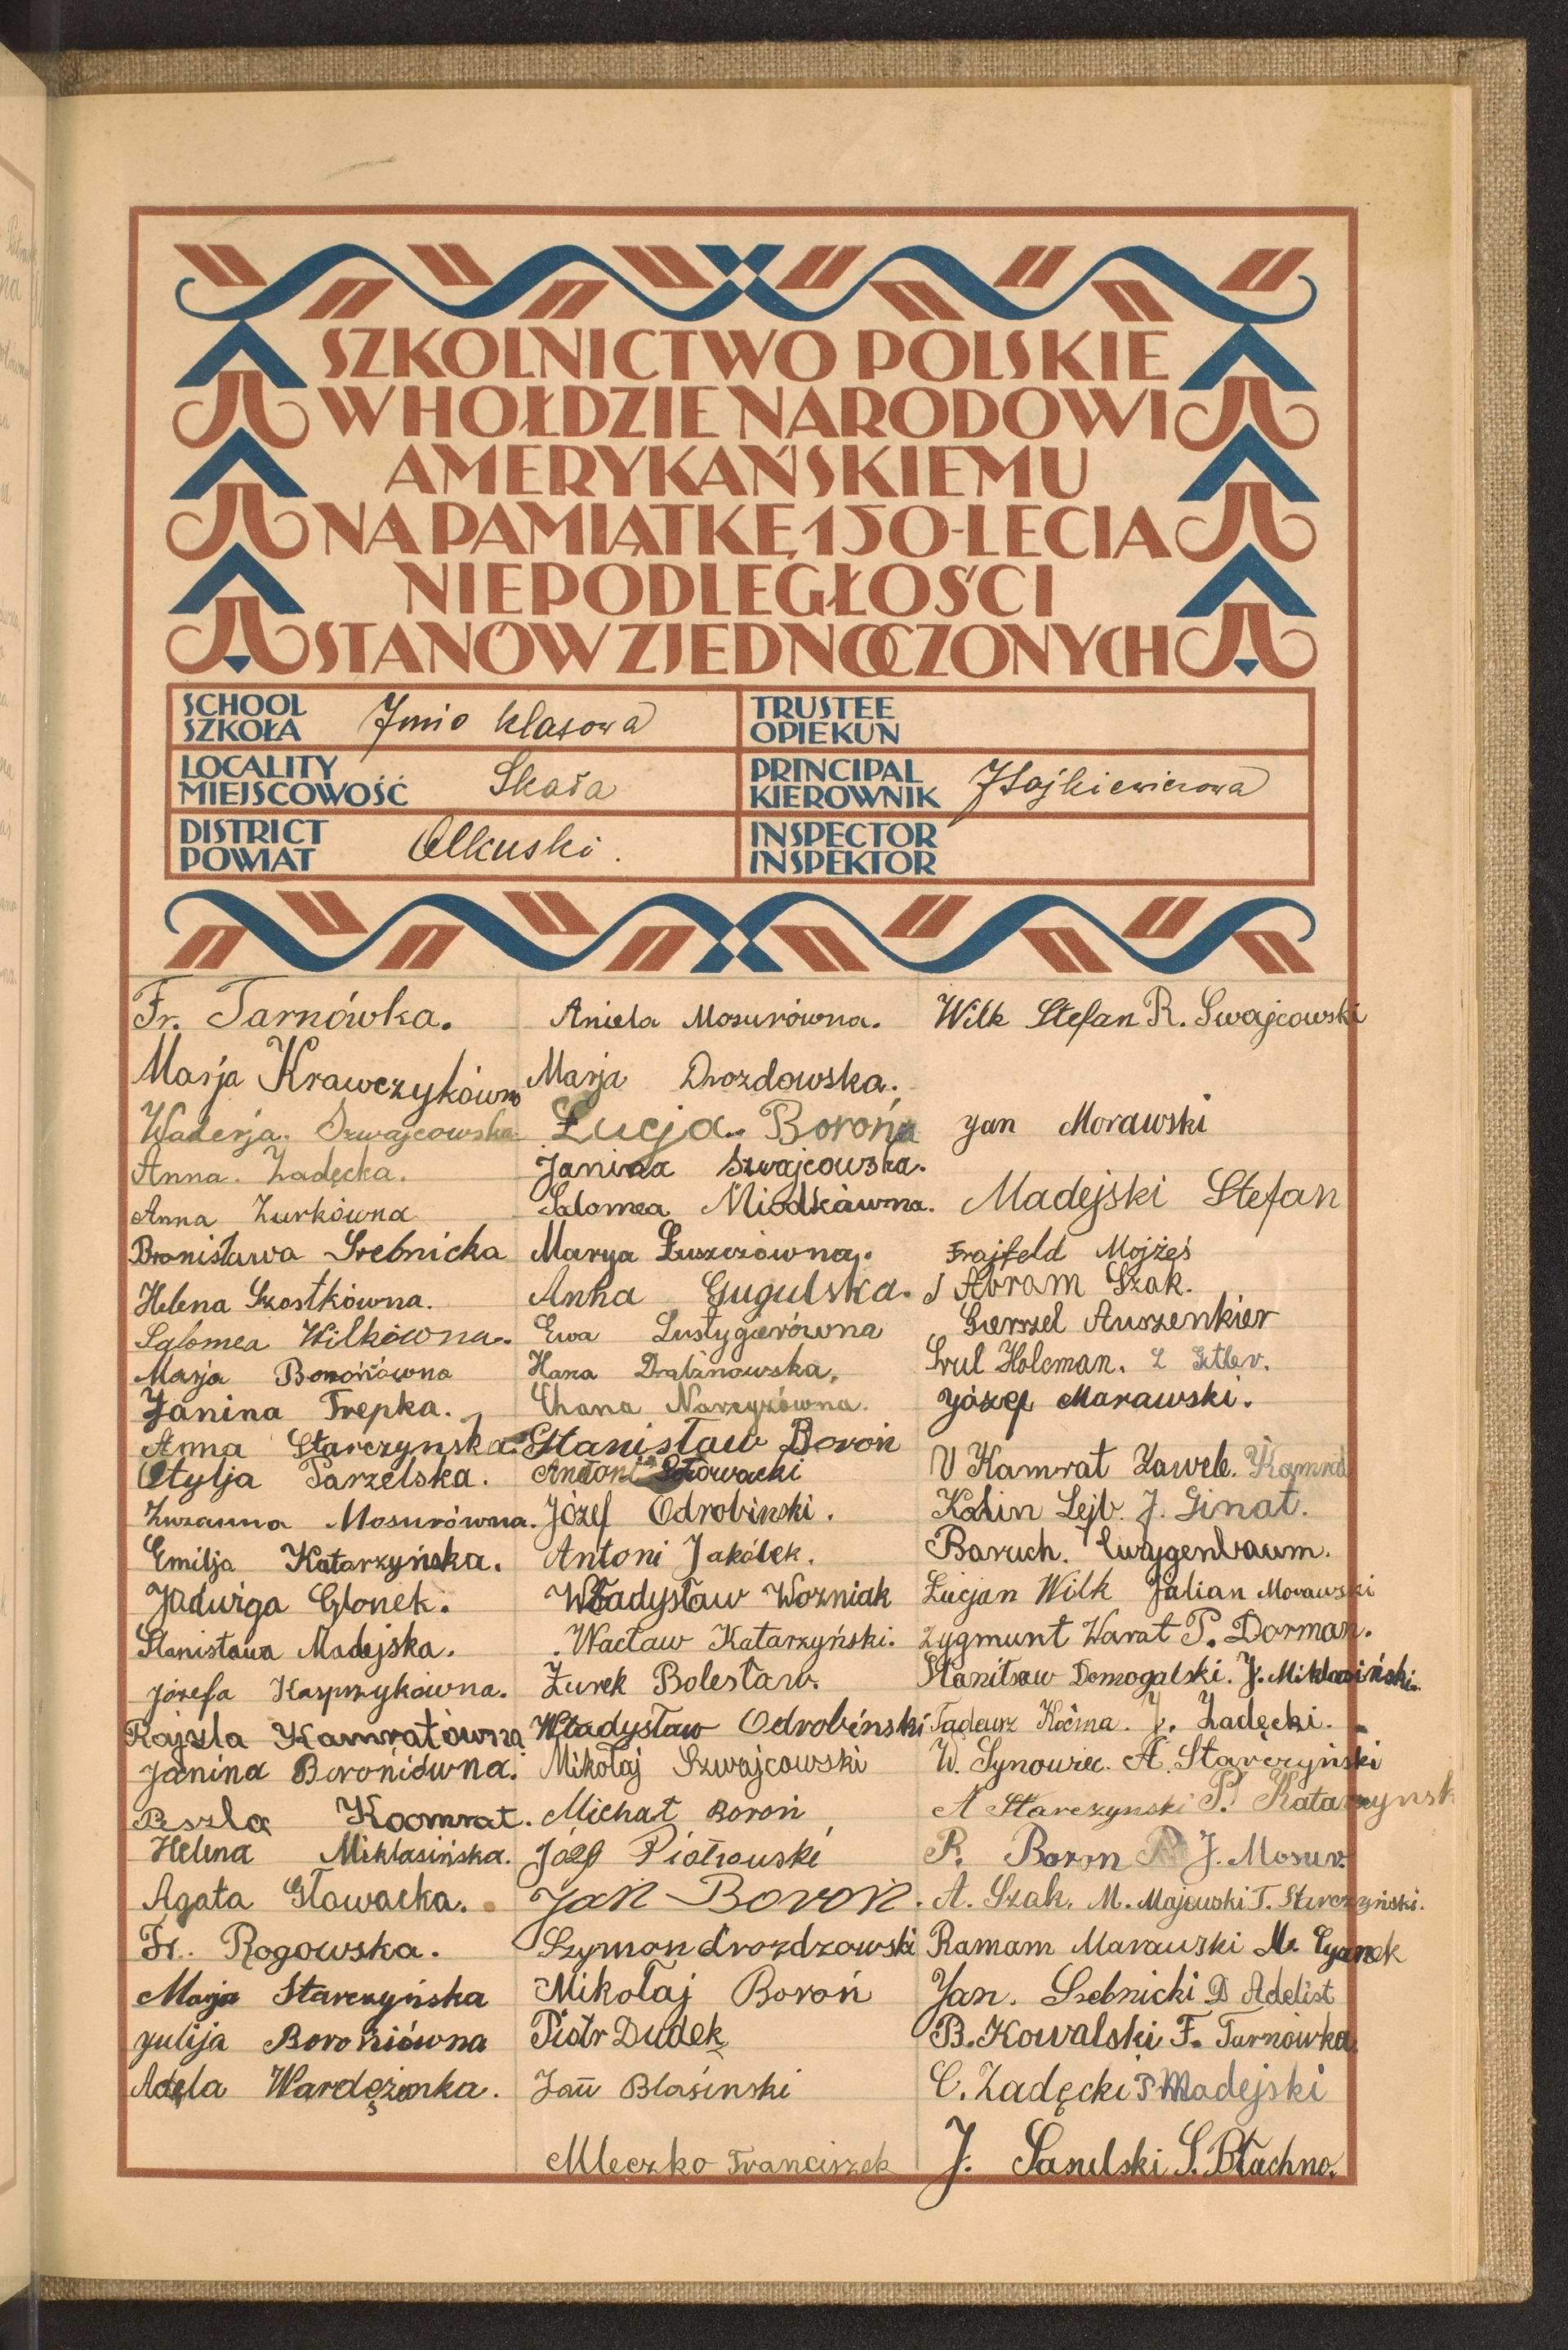 SZKOLNICTWO POLSKIE
W HOŁDZIE NARODOWI
AMERYKAŃSKIEMU
NA PAMIĄTKĘ 150-LECIA
NIEPODLEGŁOŚCI
STANÓW ZJEDNOCZONYCH
SCHOOL
SZKOŁA 7mio klasowa
TRUSTEE
OPIEKUN
LOCALITY
MIEJSCOWOŚĆ Skała
PRINCIPAL
KIEROWNIK
DISTRICT
POWIAT Olkuski.
INSPECTOR
INSPEKTOR
Fr. Tarnówka.
Marja Krawczykówna
Walerja. Szwajcowska
Anna. Zadęcka.
Anna Żurkówna
Bronisława Srebnicka
Helena Szostkówna.
Salomea Wilkówna.
Marja Boroniówna
Janina Trepka.
Anna Starczynska.
Otylja Parzelska.
Zuzanna Mosurówna.
Emilja Katarzyńska.
Jadwiga Glonek.
Stanisława Madejska.
Józefa Kasprzykówna.
Rajzla Kamratówna
Janina Boroniówna.
Peszla Koomrat.
Helena Miklasińska.
Agata Głowacka.
Fr. Rogowska.
Marja Starczyńska
Julija Boroniówna
Adela Wardężonka.
Aniela Mosurówna.
Marja Drozdowska.
Łucja Borońa
Janina Szwajcowska.
Salomea Miodkówna.
Marya Łuszczówna.
Anna Gugulska.
Ewa Lustygierówna
Hana
Chana Narzyzówna.
Stanisław Boroń
Antoni Głowacki
Józef Odrobinski.
Antoni Jakółek.
Władysław Wozniak
Wacław Katarzyński.
Żurek Bolesław.
Władysław Odrobiński
Mikołaj Szwajcowski
Michał Boroń
Józef Piotrowski
Jan Boroń.
Szymon drozdzowski
Mikołaj Boroń
Piotr Dudek
Jan Blasinski
Mleczko Franciszek
Wilk Stefan R. Swajcowski
Jan Morawski
Madejski Stefan
Frajfeld Mojżeś
Abram Szak.
Gierszel Auszenkier
Srul Holcman.
Józef Marawski.
Kamrat Kamrat
Kalin Lejb. J. Ginat.
Baruch. Cwajgenbaum.
Łucjan Wilk Julian Morawski
Zygmunt Warat P. Dorman.
Stanisław Domogalski. J. Miklasiński.
Tadeusz Koćma. J. Zadęcki.
W. Synowiec. A. Starczyński
A Starczynski P. Katarzynsk
R. Boron J. Mosur.
A. Szak. M. Majewski T. Starczyński.
Ramam Marawski M. Cyanek
Jan. Srebnicki D Adelist
B. Kowalski F. Tarnówka.
C. Zadęcki P Madejski
J. Sanulski S. Błachno.